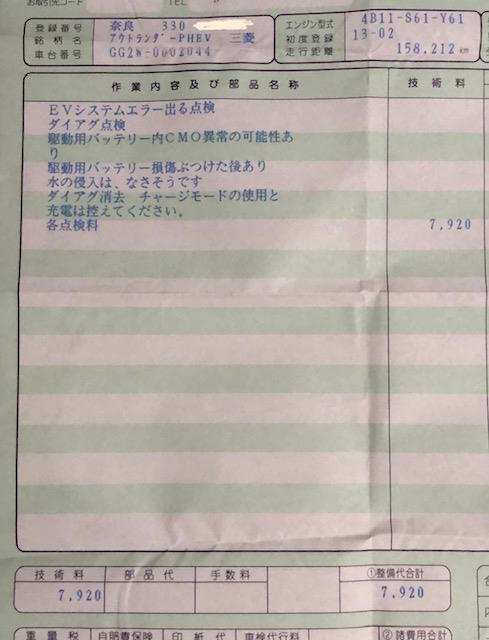 お取引先コード TEL
登録番号 奈良 330
銘柄名 アウトランダーPHEV 三菱
車台番号 GG2W-0002044
エンジン型式 4B11-S61-Y61
初度登録 13-02
走行距離 158,212 km
作業内容及び部品名称 技術料
EVシステムエラー出る点検
ダイアグ点検
駆動用バッテリー内CMO異常の可能性あ
り
駆動用バッテリー損傷ぶつけた後あり
水の侵入は、なさそうです
ダイアグ消去 チャージモードの使用と
充電は控えてください。
各点検料 7,920
技術料 部品代 手数料 ①整備代合計
7,920 7,920
重量税 自賠責保険 印紙代 車検代行料 ②諸費用合計